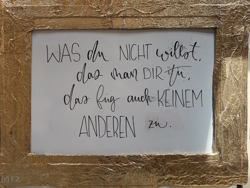 WAS du NICHT willst,
das man DIR tu,
das füg auch KEINEM
ANDEREN zu.